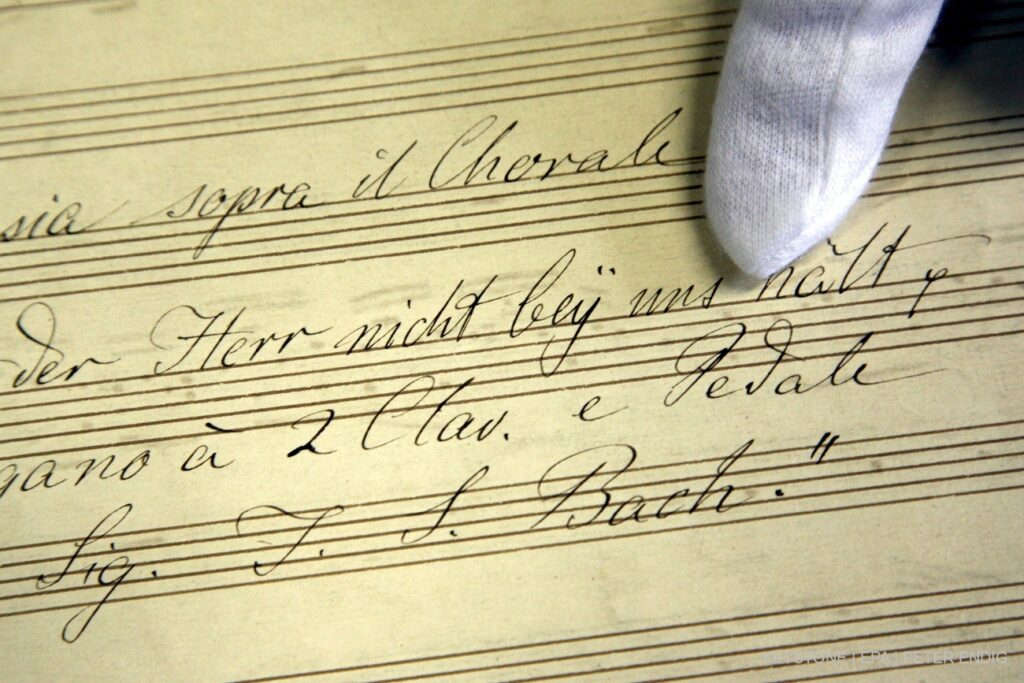 sia sopra il Chorale
der Herr nicht beÿ uns hält,
gano à 2 Clav. e Pedale
Sig. J. S. Bach."
EPA | PETER ENDIG